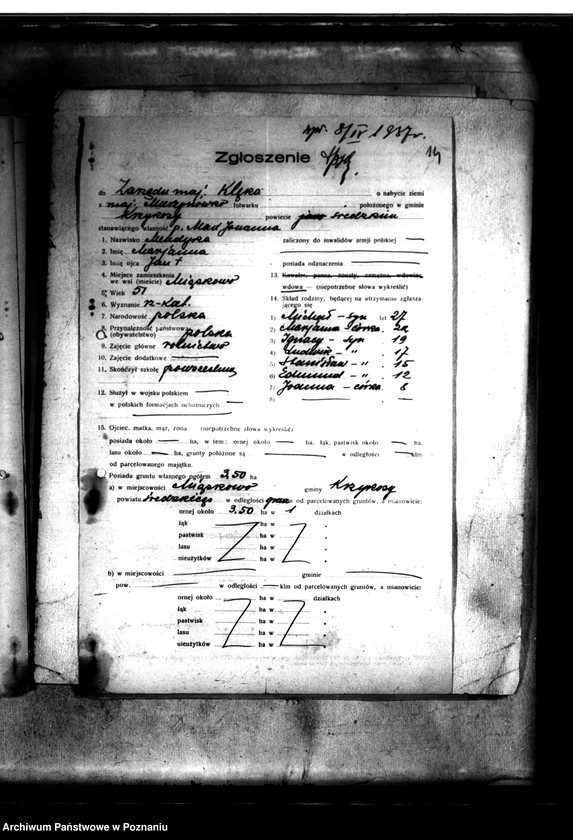 wpł. 8/IV 1937r.
Zgłoszenie
14
do Zarządu maj. Klęka o nabycie ziemi
z maj. folwarku położonego w gminie
Krzykosy powiecie średzkim
stanowiącego własność p.
1. Nazwisko zaliczony do inwalidów armji polskiej
2. Imię Marjanna
3. Imię ojca Jan † posiada odznaczenia
4. Miejsce zamieszkania we wsi (mieście) Miąskowo
13. Kawaler, panna, żonaty, zamężna, wdowiec, wdowa — (niepotrzebne słowa wykreślić)
5. Wiek 51
14. Skład rodziny, będącej na utrzymaniu zgłaszającego się
6. Wyznanie rz-kat.
1) Michał – syn lat 27
7. Narodowość polska
2) Marjanna córka 22
8. Przynależność państwowa (obywatelstwo) polska
3) Ignacy – syn 19
9. Zajęcie główne rolnictwo
4) Ludwik – " 17
10. Zajęcie dodatkowe
5) Stanisław – " 15
11. Skończył szkołę powszechną
6) Edmund – " 12
7) Joanna – córka 8
12. Służył w wojsku polskiem
8)
w polskich formacjach ochotniczych
15. Ojciec, matka, mąż, żona (niepotrzebne słowa wykreślić)
posiada około ha, w tem: ornej około ha, łąk, pastwisk około ha.
lasu około ha, grunty położone są w odległości klm
od parcelowanego majątku.
Posiada gruntu własnego ogółem 3,50 ha
a) w miejscowości Miąskowo gminy Krzykosy
powiatu średzkiego w odległości od parcelowanych gruntów, a mianowicie:
ornej około 3.50 ha w 1 działkach
łąk ha w
pastwisk ha w
lasu ha w
nieużytków ha w
b) w miejscowości gminie
pow. w odległości klm od parcelowanych gruntów, a mianowicie:
ornej około ha w działkach
łąk ha w
pastwisk ha w
lasu ha w
nieużytków ha w
Archiwum Państwowe w Poznaniu